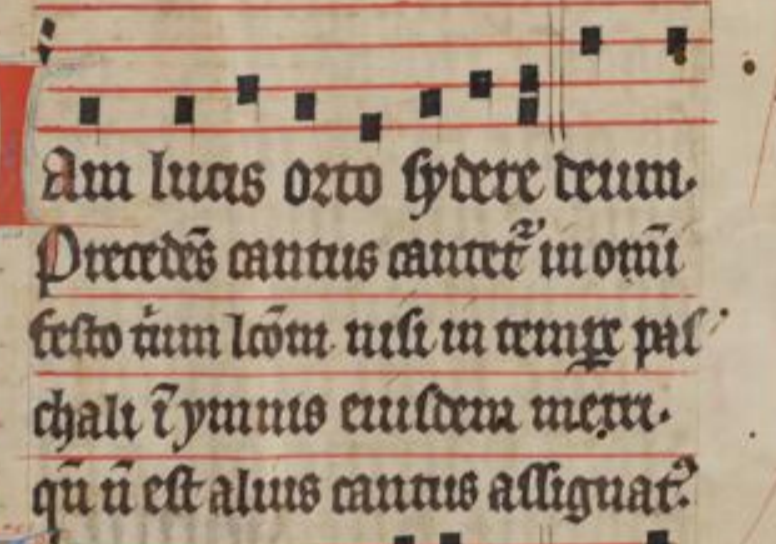 Am lucis orto sydere deum.
Precedēs cantus cantet᷑ in omī
festo triū lcōm nisi in tempꝑe pas
chali ī ymnis eiusdem metri.
qn̄ n̄ est alius cantus assignat᷑.